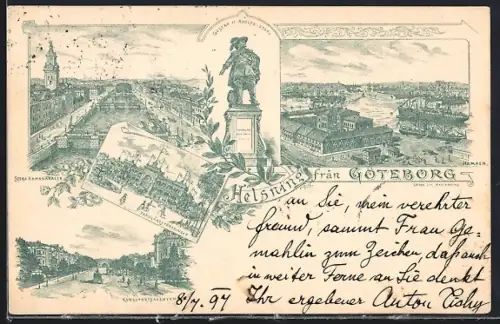 GUSTAF II ADOLFS STATY
STORA HAMNGATAN
HAMNEN
Helsning från GÖTEBORG
KUNGSPORTSAVENYEN
8/7. 97
an Sie, mein verehrter
Freund, sammt Frau Ge-
mahlin zum Zeichen, daß auch
in weiter Ferne an Sie denkt
Ihr ergebener Anton